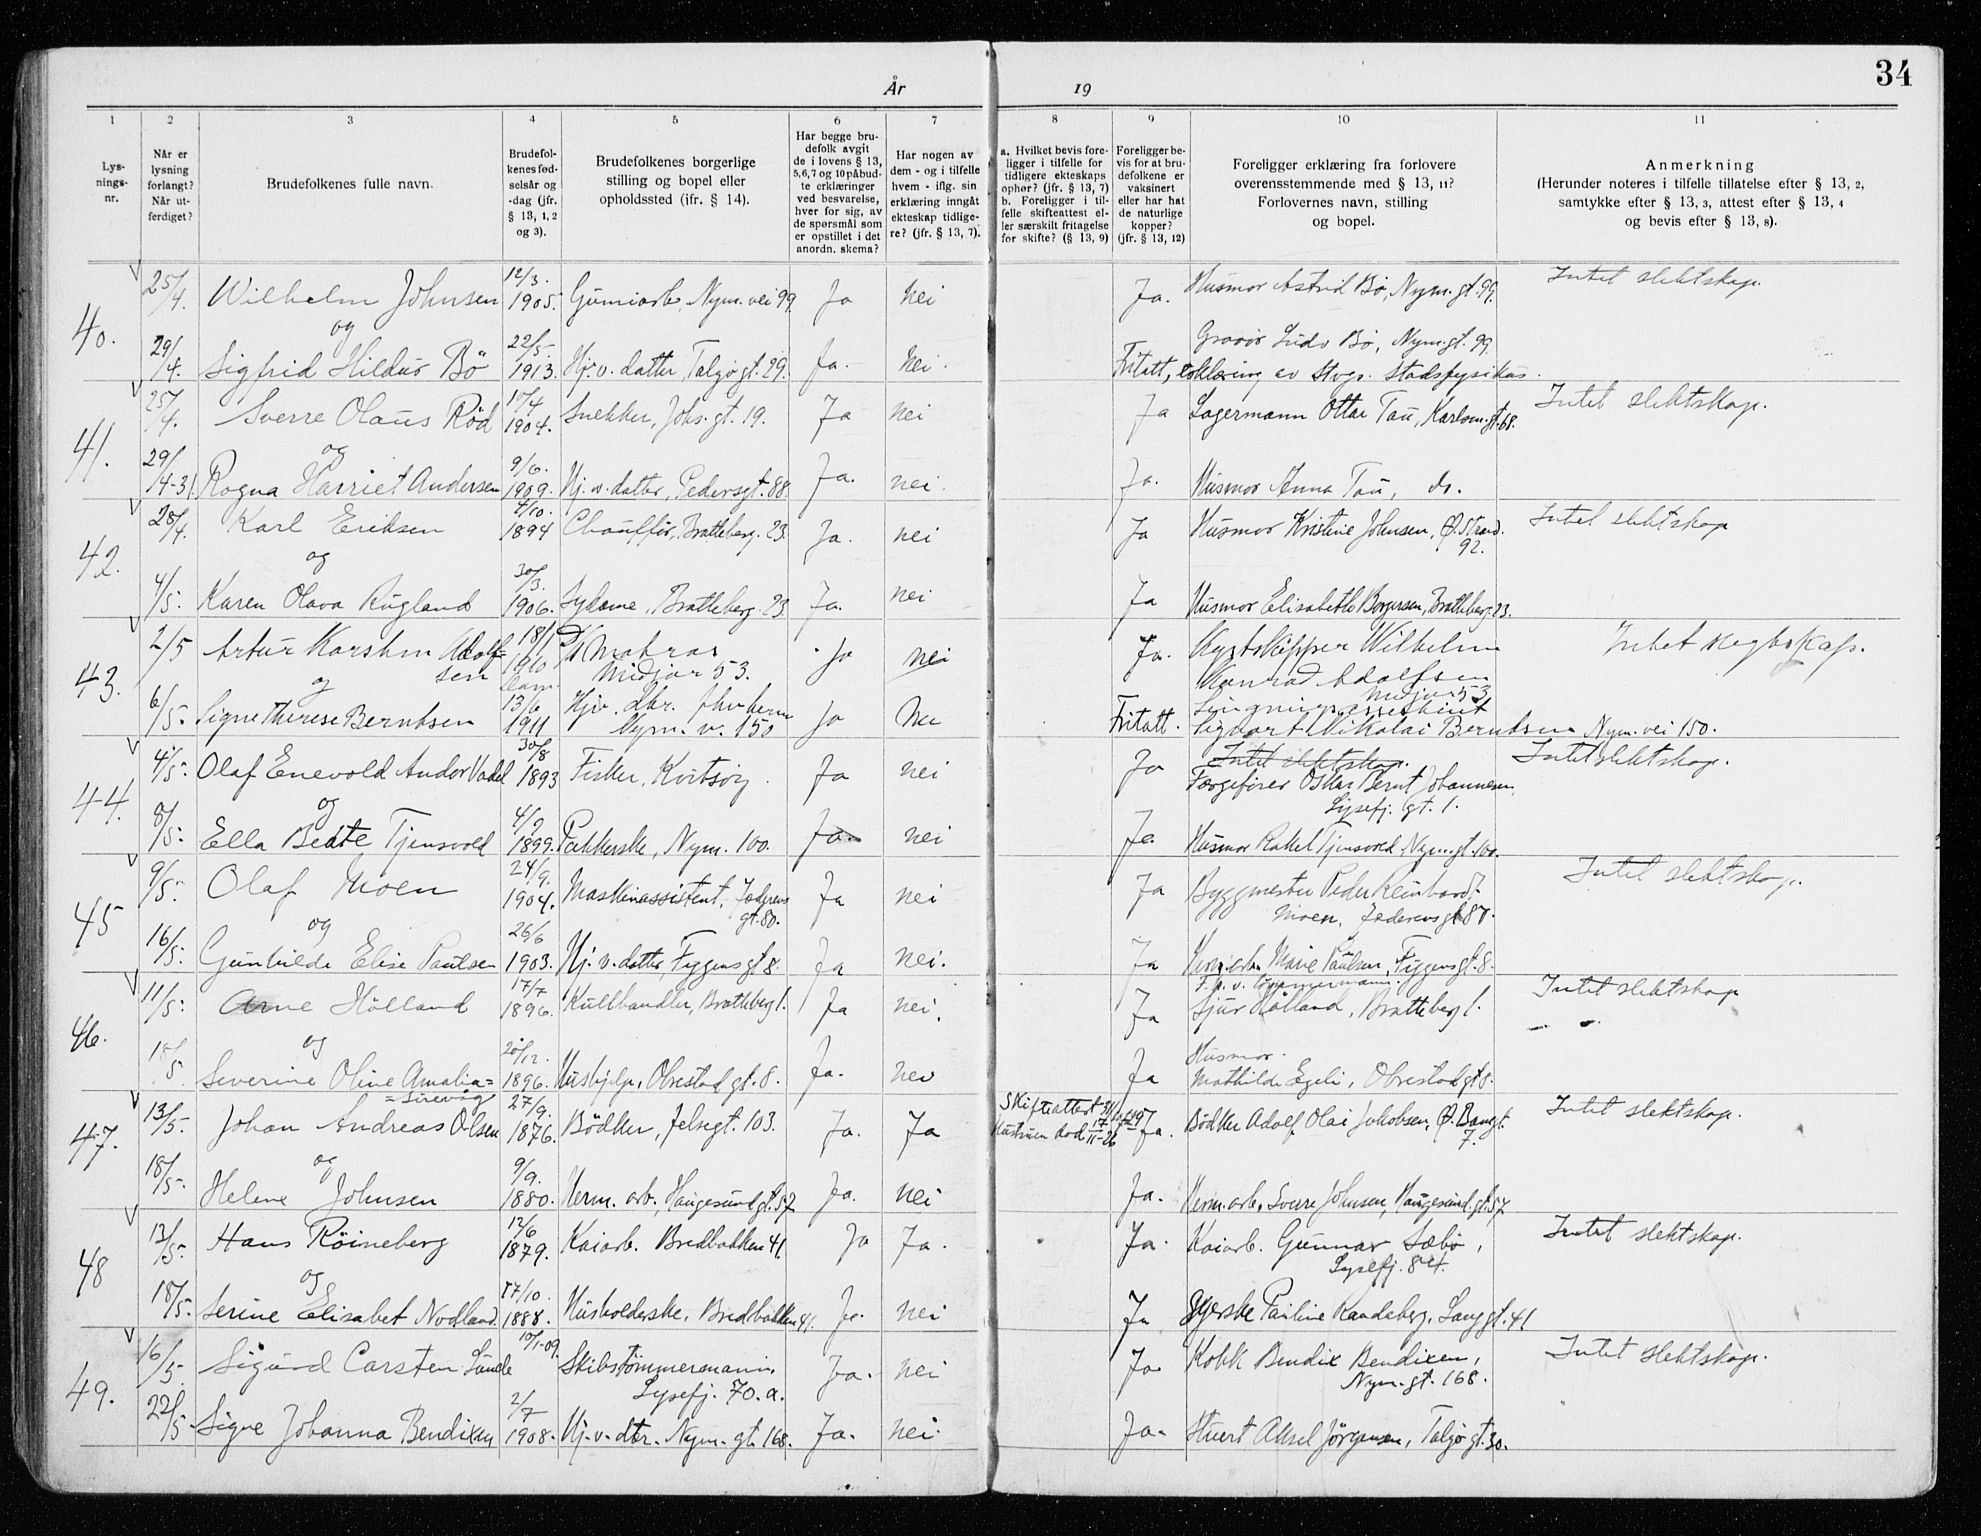 34
År 19
1 2 3 4 5 6 7 8 9 10 11
Lys-
nings-
nr.
Når er
lysning
forlangt?
Når ut-
ferdiget?
Brudefolkenes fulle navn.
Brudefol-
kenes fød-
selsår og
-dag (jfr.
§ 13, 1, 2
og 3).
Brudefolkenes borgerlige
stilling og bopel eller
opholdssted (ifr. § 14).
Har begge bru-
defolk avgit
de i lovens § 13,
5,6,7 og 10 påbud-
te erklæringer
ved besvarelse,
hver for sig, av
de spørsmål som
er opstillet i det
anordn. skema?
Har nogen av
dem - og i tilfelle
hvem - iflg. sin
erklæring inngåt
ekteskap tidlige-
re? (jfr. § 13, 7).
a. Hvilket bevis fore-
ligger i tilfelle for
tidligere ekteskaps
ophør? (jfr. § 13, 7)
b. Foreligger i til-
felle skifteattest el-
ler særskilt fritagelse
for skifte? (§ 13, 9)
Foreligger be-
vis for at bru-
defolkene er
vaksinert
eller har hat
de naturlige
kopper?
(jfr. § 13, 12)
Foreligger erklæring fra forlovere
overensstemmende med § 13, 11?
Forlovernes navn, stilling
og bopel.
Anmerkning
(Herunder noteres i tilfelle tillatelse efter § 13, 2,
samtykke efter § 13, 3, attest efter § 13, 4
og bevis efter § 13, 8).
40. 25/4. Wilhelm Johnsen 12/3. 1905. Gumiarb. Nym. vei 99 Ja nei Ja. Husmor Astrid Bø, Nym. gt. 99. Intet slektskap.
og
29/4. Sigfrid Hildur Bö 22/5. 1913. Hj. v. datter, Talgø gt. 29. Ja. nei. Ludv Bø, Nym. gt. 99.
Fritatt, erklæring av Stvgr. Stadsfysikus.
41. 25/4. Sverre Olaus Röd 10/4 1904. Snekker, Johs. gt. 19. Ja nei Ja Lagermann Ottar Tau, Karlsm. gt. 68. Intet slektskap.
og
29/4-31 Ragna Harriet Andersen 9/6. 1909. Hj. v. datter, Pedersgt. 88. Ja. nei. Ja. Husmor Anna Tau, do.
42. 28/4. Karl Eriksen 4/10. 1894 Chauffør, Bratteberg. 23. Ja. nei Ja Husmor Kristine Johnsen, Ø. Strand. 92. Intet slektskap
og
4/5. Karen Olava Rugland 30/3. 1906. Sydame, Bratteberg 23 Ja. nei Ja Husmor Elisabeth Borgersen, Bratteberg. 23.
43. 2/5 Artur Karsten Adolf=
sen 18/1 1910 Matros
Midjar 53. Ja nei Ja. Kystskipper Wilhelm
Konrad Adolfsen
Midjar 53 Intet slegtskap.
og
6/5. Signe Therese Berntsen 13/6 1911 Hjv. dtr.
Nym. v. 150 Ja Nei Fritatt.
Sigvart Nikolai Berntsen Nym. vei 150.
44. 4/5. Olaf Enevold Andor Vadel 30/8 1893 Fisker, Kvitsøy. Ja nei Ja Intet slektskap.
Færgefører Oskar Bernt Johannesen,
Lysefj. gt. 1. Intet slektskap.
og
8/5. Ella Beate Tjensvold 4/9 1899. Pakkerske, Nym. 100. Ja. nei Ja. Husmor Rakel Tjensvold Nym. gt. 100.
45 9/5. Olaf Moen 24/9. 1904. Maskinassistent, Jæderens
gt. 80. Ja nei Ja Byggmester Peder Reinhard
Moen, Jæderens gt 87. Intet slektskap.
og
16/5. Gunhilde Elise Paulsen 26/6 1903. Hj. v. datter, Tyggens gt 8. Ja nei. Ja Herm. arb. Marie Paulsen, Tyggens gt. 8.
46. 11/5. Arne Hölland 17/7 1896. Kullhandler, Bratteberg 1. Ja nei. Ja F. h. v. tömmermann.
Sjur Hölland, Bratteberg 1. Intet slektskap
og
18/5 Severine Oline Amalia=
=Sirevåg 20/12. 1896. Hushjelp, Obrestad gt. 8. Ja. nei Ja Husmor.
Mathilde Egeli, Obrestad gt 8.
47. 13/5. Johan Andreas Olsen 27/9. 1876. Bödker, Jelsegt. 103. Ja. Ja Skifteattest
Hustruen död 17/11-26 Ja. Bødker Adolf Olai Jakobsen, Ø. Bangt.
7. Intet slektskap.
og
18/5. Helene Johnsen 9/9. 1880. Herm. arb., Haugesund gt. 57 Ja. nei Ja. Herm. arb. Sverre Johnsen, Haugesund. gt. 57
48 13/5. Hans Röineberg 12/6 1879. Kaiarb. Bredbakken 41 Ja Ja. Ja. Kaiarb. Gunnar Sæbö,
Lysefj. 84. Intet slektskap.
og
18/5. Serine Elisabet Nodland. 17/10. 1888. Husholderske, Bredbakken 41. Ja. nei Ja Syerske Pauline Randeberg, Lang gt. 41
49. 16/5. Sigurd Carsten Lunde 10/1-09. Skibstömmermann,
Lysefj. 70. a. Ja. nei Ja. Kokk Bendix Bendixen,
Nym. gt. 168. Intet slektskap.
22/5. Signe Johanna Bendixen 2/7 1908. Hj. v. dtr. Nym. gt. 168. Ja. nei. Ja. Stuert Aksel Jörgensen, Talgø gt. 30.